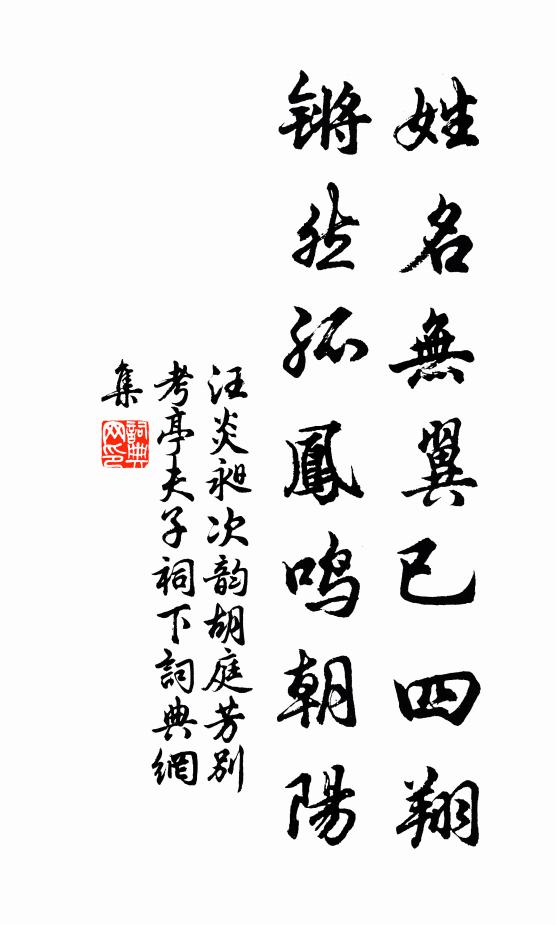 姓名無翼已四翔
锵然孤鳳鸣朝陽
汪炎昶次韵胡庭芳别
考亭夫子祠下詞典網
集
詞典网印